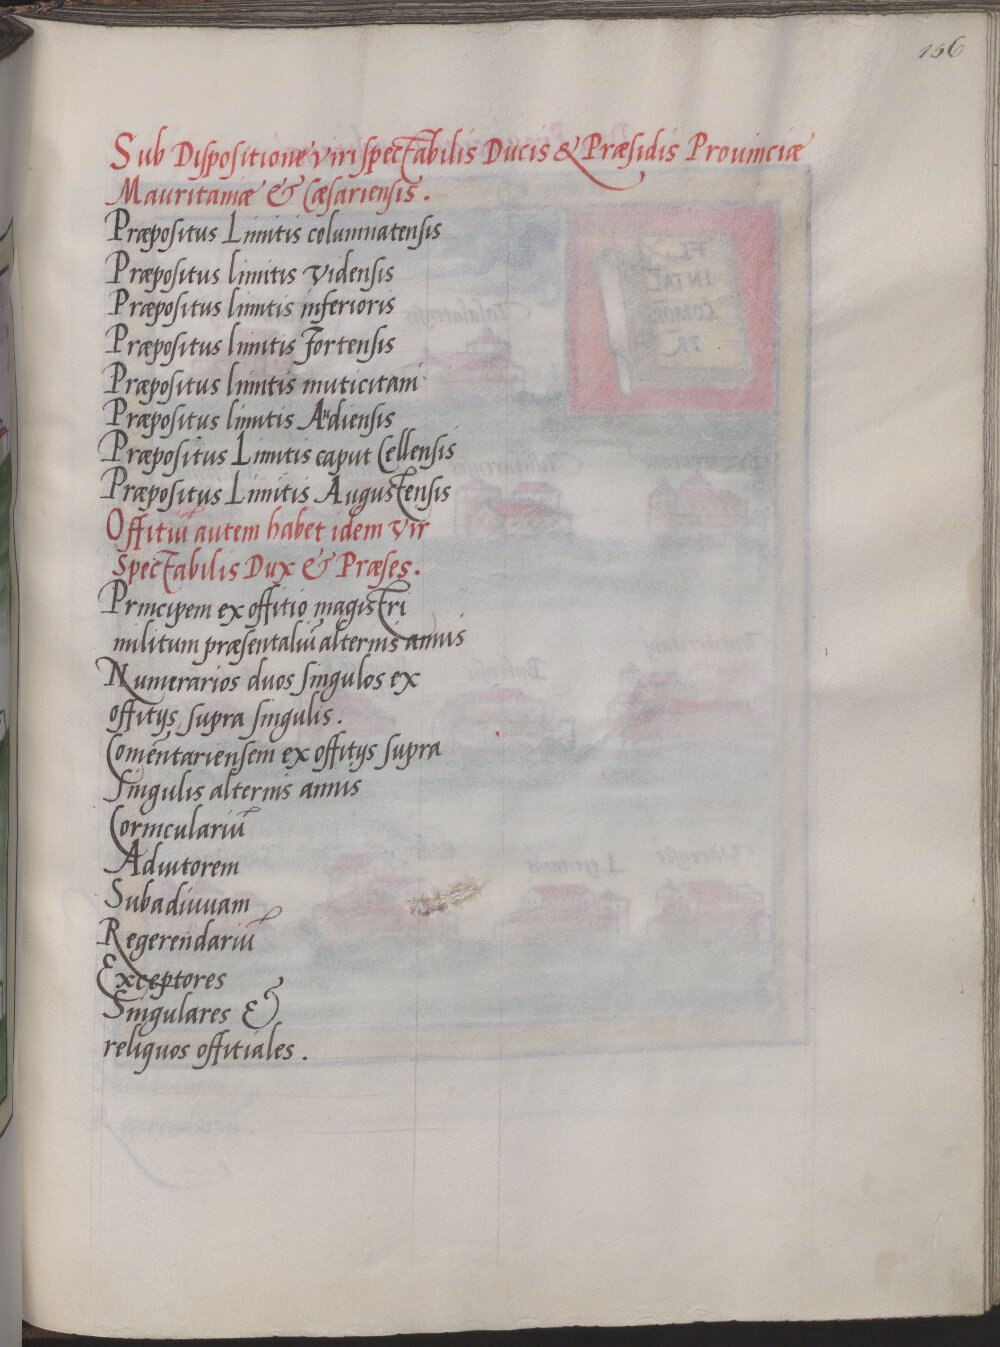 156
Sub Dispositione viri spectabilis Ducis & Præsidis Prouinciæ
Mauritaniæ & Cæsariensis.
Præpositus Limitis columnatensis
Præpositus limitis vidensis
Præpositus limitis inferioris
Præpositus limitis Fortensis
Præpositus limitis muticitani
Præpositus limitis Audiensis
Præpositus Limitis caput Cellensis
Præpositus Limitis Augustensis
Offitiū autem habet idem vir
spectabilis Dux & Præses.
Principem ex offitio magistri
militum præsentaliū alternis annis
Numerarios duos singulos ex
offitijs supra singulis.
Comētariensem ex offitijs supra
singulis alternis annis
Corniculariū
Adiutorem
Subadiuuam
Regerendariū
Exceptores
Singulares &
reliquos offitiales.